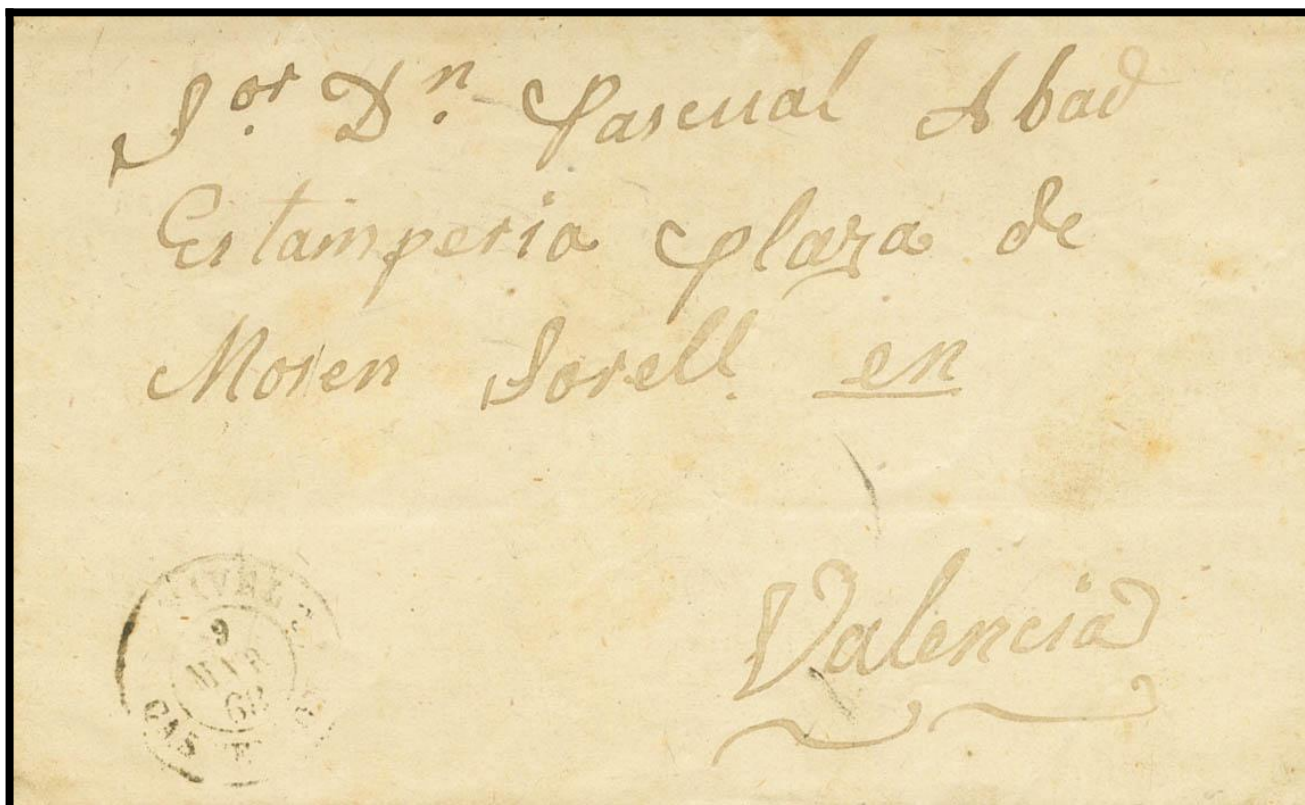 Sor. Dn. Pascual Abad
Estamperia plaza de
Mosen Sorell. en
Valencia
9
MAR
CAS